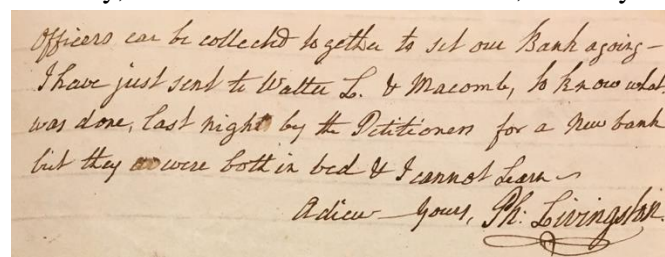 Officers can be collected together to set our Bank agoing –
I have just sent to Walter L. & Macomb, to know what
was done, last night by the Petitioners for a New bank
but they were both in bed & I cannot learn –
Adieu – Yours, Ph: Livingston.